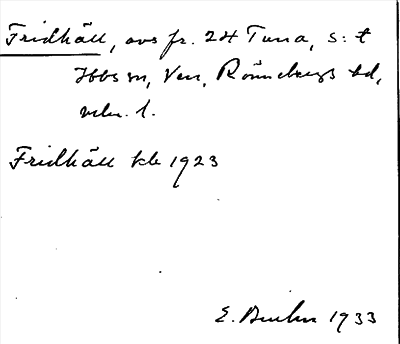 Fridhäll, avs fr. 24 Tuna, S:t
Ibbs sn, Ven, Rönnebergs hd,
Mlm. l.
Fridhäll kb 1923
E. 1933